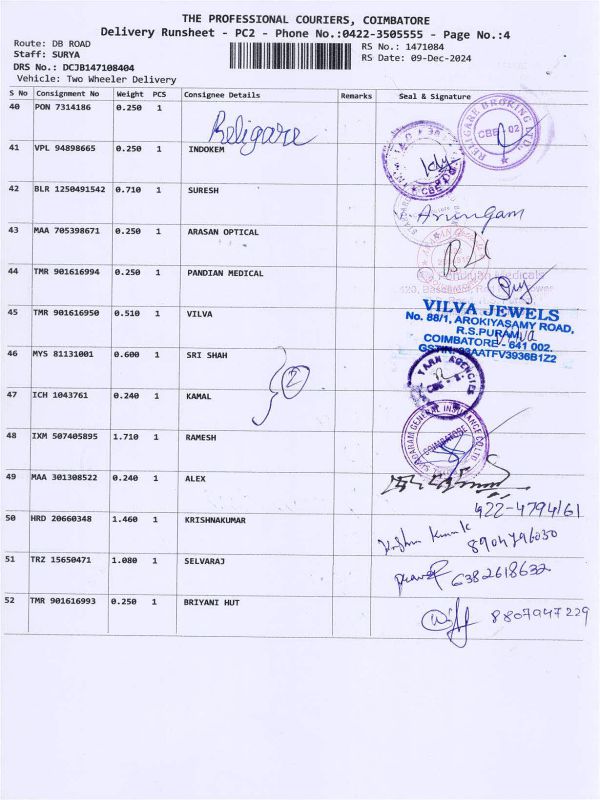 THE PROFESSIONAL COURIERS, COIMBATORE
Delivery Runsheet - PC2 - Phone No.:0422-3505555 - Page No.:4
Route: DB ROAD
RS No.: 1471084
Staff: SURYA
RS Date: 09-Dec-2024
DRS No.: DCJB147108404
Vehicle: Two Wheeler Delivery
S No Consignment No Weight PCS Consignee Details Remarks Seal & Signature
40 PON 7314186 0.250 1 Religare
RELIGARE BROKING LTD. CBE 02
41 VPL 94898665 0.250 1 INDOKEM
42 BLR 1250491542 0.710 1 SURESH
Arungam
43 MAA 705398671 0.250 1 ARASAN OPTICAL
44 TMR 901616994 0.250 1 PANDIAN MEDICAL
Medicals
45 TMR 901616950 0.510 1 VILVA
VILVA JEWELS
No. 88/1, AROKIYASAMY ROAD,
R.S.PURAM,
COIMBATORE - 641 002.
GSTIN: 33AATFV3936B1Z2
46 MYS 81131001 0.600 1 SRI SHAH
2
YARN AGENCIES
47 ICH 1043761 0.240 1 KAMAL
48 IXM 507405895 1.710 1 RAMESH
GENERAL INSURANCE CO LTD
COIMBATORE
49 MAA 301308522 0.240 1 ALEX
422-4794161
50 HRD 20660348 1.460 1 KRISHNAKUMAR
8904796030
51 TRZ 15650471 1.080 1 SELVARAJ
6382618632
52 TMR 901616993 0.250 1 BRIYANI HUT
8807947229